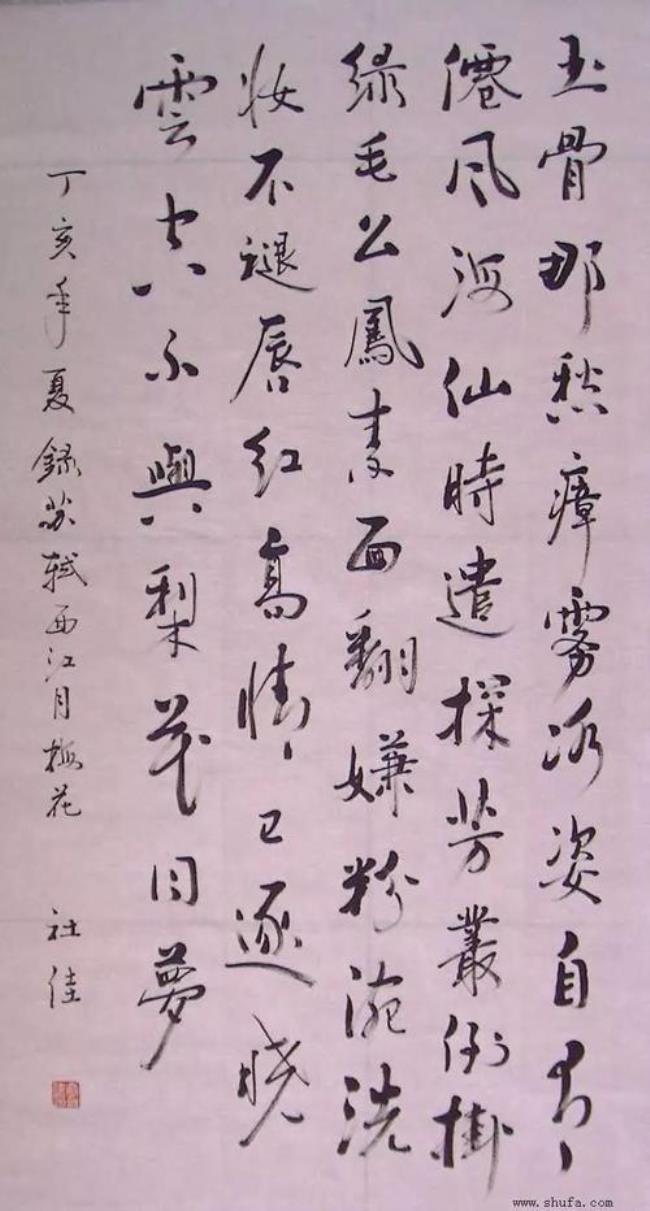 玉骨那愁瘴霧冰姿自有
僊風海仙時遣探芳叢倒掛
緑毛公鳳素面翻嫌粉涴洗
妆不褪唇红高情已逐曉
雲空不與梨花同夢
丁亥年夏録苏轼西江月梅花 社佳
www.shufa.com